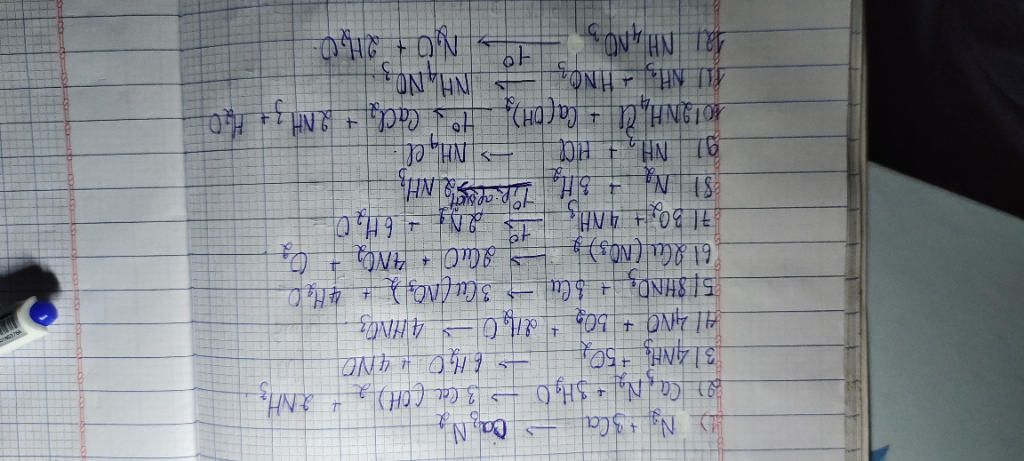 1) N₂ + 3Ca → Ca₃N₂
2) Ca₃N₂ + 3H₂O → 3Ca(OH)₂ + 2NH₃.
3) 4NH₃ + 5O₂ → 6H₂O + 4NO
4) 4NO + 3O₂ + 2H₂O → 4HNO₃.
5) 8HNO₃ + 3Cu → 3Cu(NO₃)₂ + 4H₂O
6) 2Cu(NO₃)₂ → 2CuO + 4NO₂ + O₂.
7) 3O₂ + 4NH₃ →t° 2N₂ + 6H₂O
8) N₂ + 3H₂ →t° 2NH₃
9) NH₃ + HCl → NH₄Cl.
10) 2NH₄Cl + Ca(OH)₂ →t° CaCl₂ + 2NH₃ + H₂O
11) NH₃ + HNO₃ → NH₄NO₃.
12) NH₄NO₃ →t° N₂O + 2H₂O.